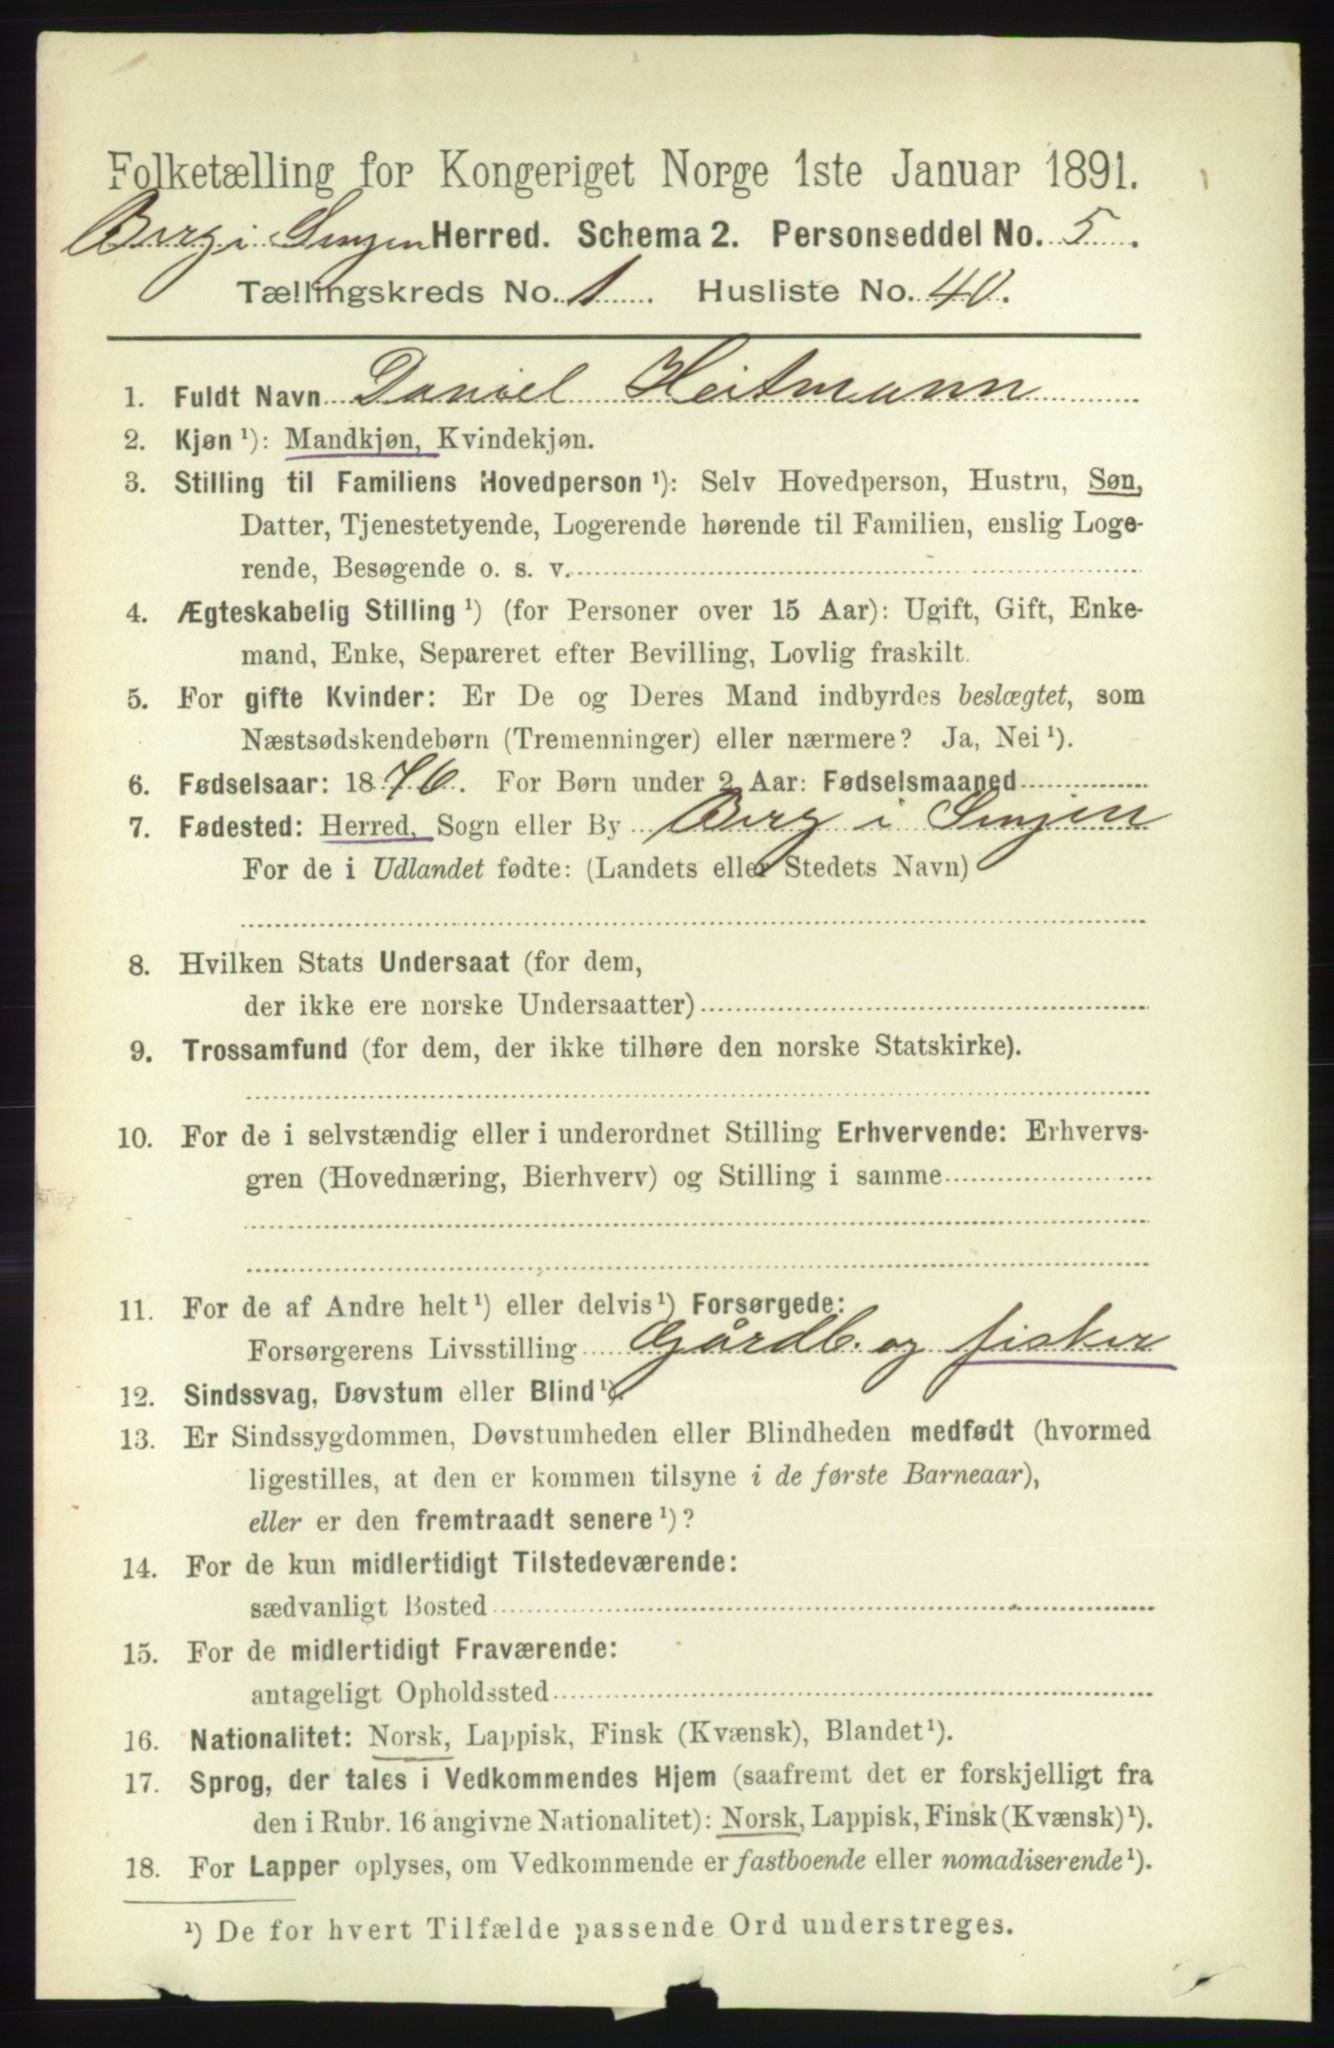 Folketælling for Kongeriget Norge 1ste Januar 1891.
Berg i Senjen Herred. Schema 2. Personseddel No. 5.
Tællingskreds No. 1 Husliste No. 40.
1. Fuldt Navn Daniel Heitmann
2. Kjøn ¹): Mandkjøn, Kvindekjøn.
3. Stilling til Familiens Hovedperson ¹): Selv Hovedperson, Hustru, Søn,
Datter, Tjenestetyende, Logerende hørende til Familien, enslig Loge-
rende, Besøgende o. s. v.
4. Ægteskabelig Stilling ¹) (for Personer over 15 Aar): Ugift, Gift, Enke-
mand, Enke, Separeret efter Bevilling, Lovlig fraskilt.
5. For gifte Kvinder: Er De og Deres Mand indbyrdes beslægtet, som
Næstsødskendebørn (Tremenninger) eller nærmere? Ja, Nei ¹).
6. Fødselsaar: 1876. For Børn under 2 Aar: Fødselsmaaned
7. Fødested: Herred, Sogn eller By Berg i Senjen
For de i Udlandet fødte: (Landets eller Stedets Navn)
8. Hvilken Stats Undersaat (for dem,
der ikke ere norske Undersaatter)
9. Trossamfund (for dem, der ikke tilhøre den norske Statskirke).
10. For de i selvstændig eller i underordnet Stilling Erhvervende: Erhvervs-
gren (Hovednæring, Bierhverv) og Stilling i samme
11. For de af Andre helt ¹) eller delvis ¹) Forsørgede:
Forsørgerens Livsstilling Gårdb. og fisker
12. Sindssvag, Døvstum eller Blind ¹).
13. Er Sindssygdommen, Døvstumheden eller Blindheden medfødt (hvormed
ligestilles, at den er kommen tilsyne i de første Barneaar),
eller er den fremtraadt senere ¹)?
14. For de kun midlertidigt Tilstedeværende:
sædvanligt Bosted
15. For de midlertidigt Fraværende:
antageligt Opholdssted
16. Nationalitet: Norsk, Lappisk, Finsk (Kvænsk), Blandet ¹).
17. Sprog, der tales i Vedkommendes Hjem (saafremt det er forskjelligt fra
den i Rubr. 16 angivne Nationalitet): Norsk, Lappisk, Finsk (Kvænsk) ¹).
18. For Lapper oplyses, om Vedkommende er fastboende eller nomadiserende ¹).
¹) De for hvert Tilfælde passende Ord understreges.